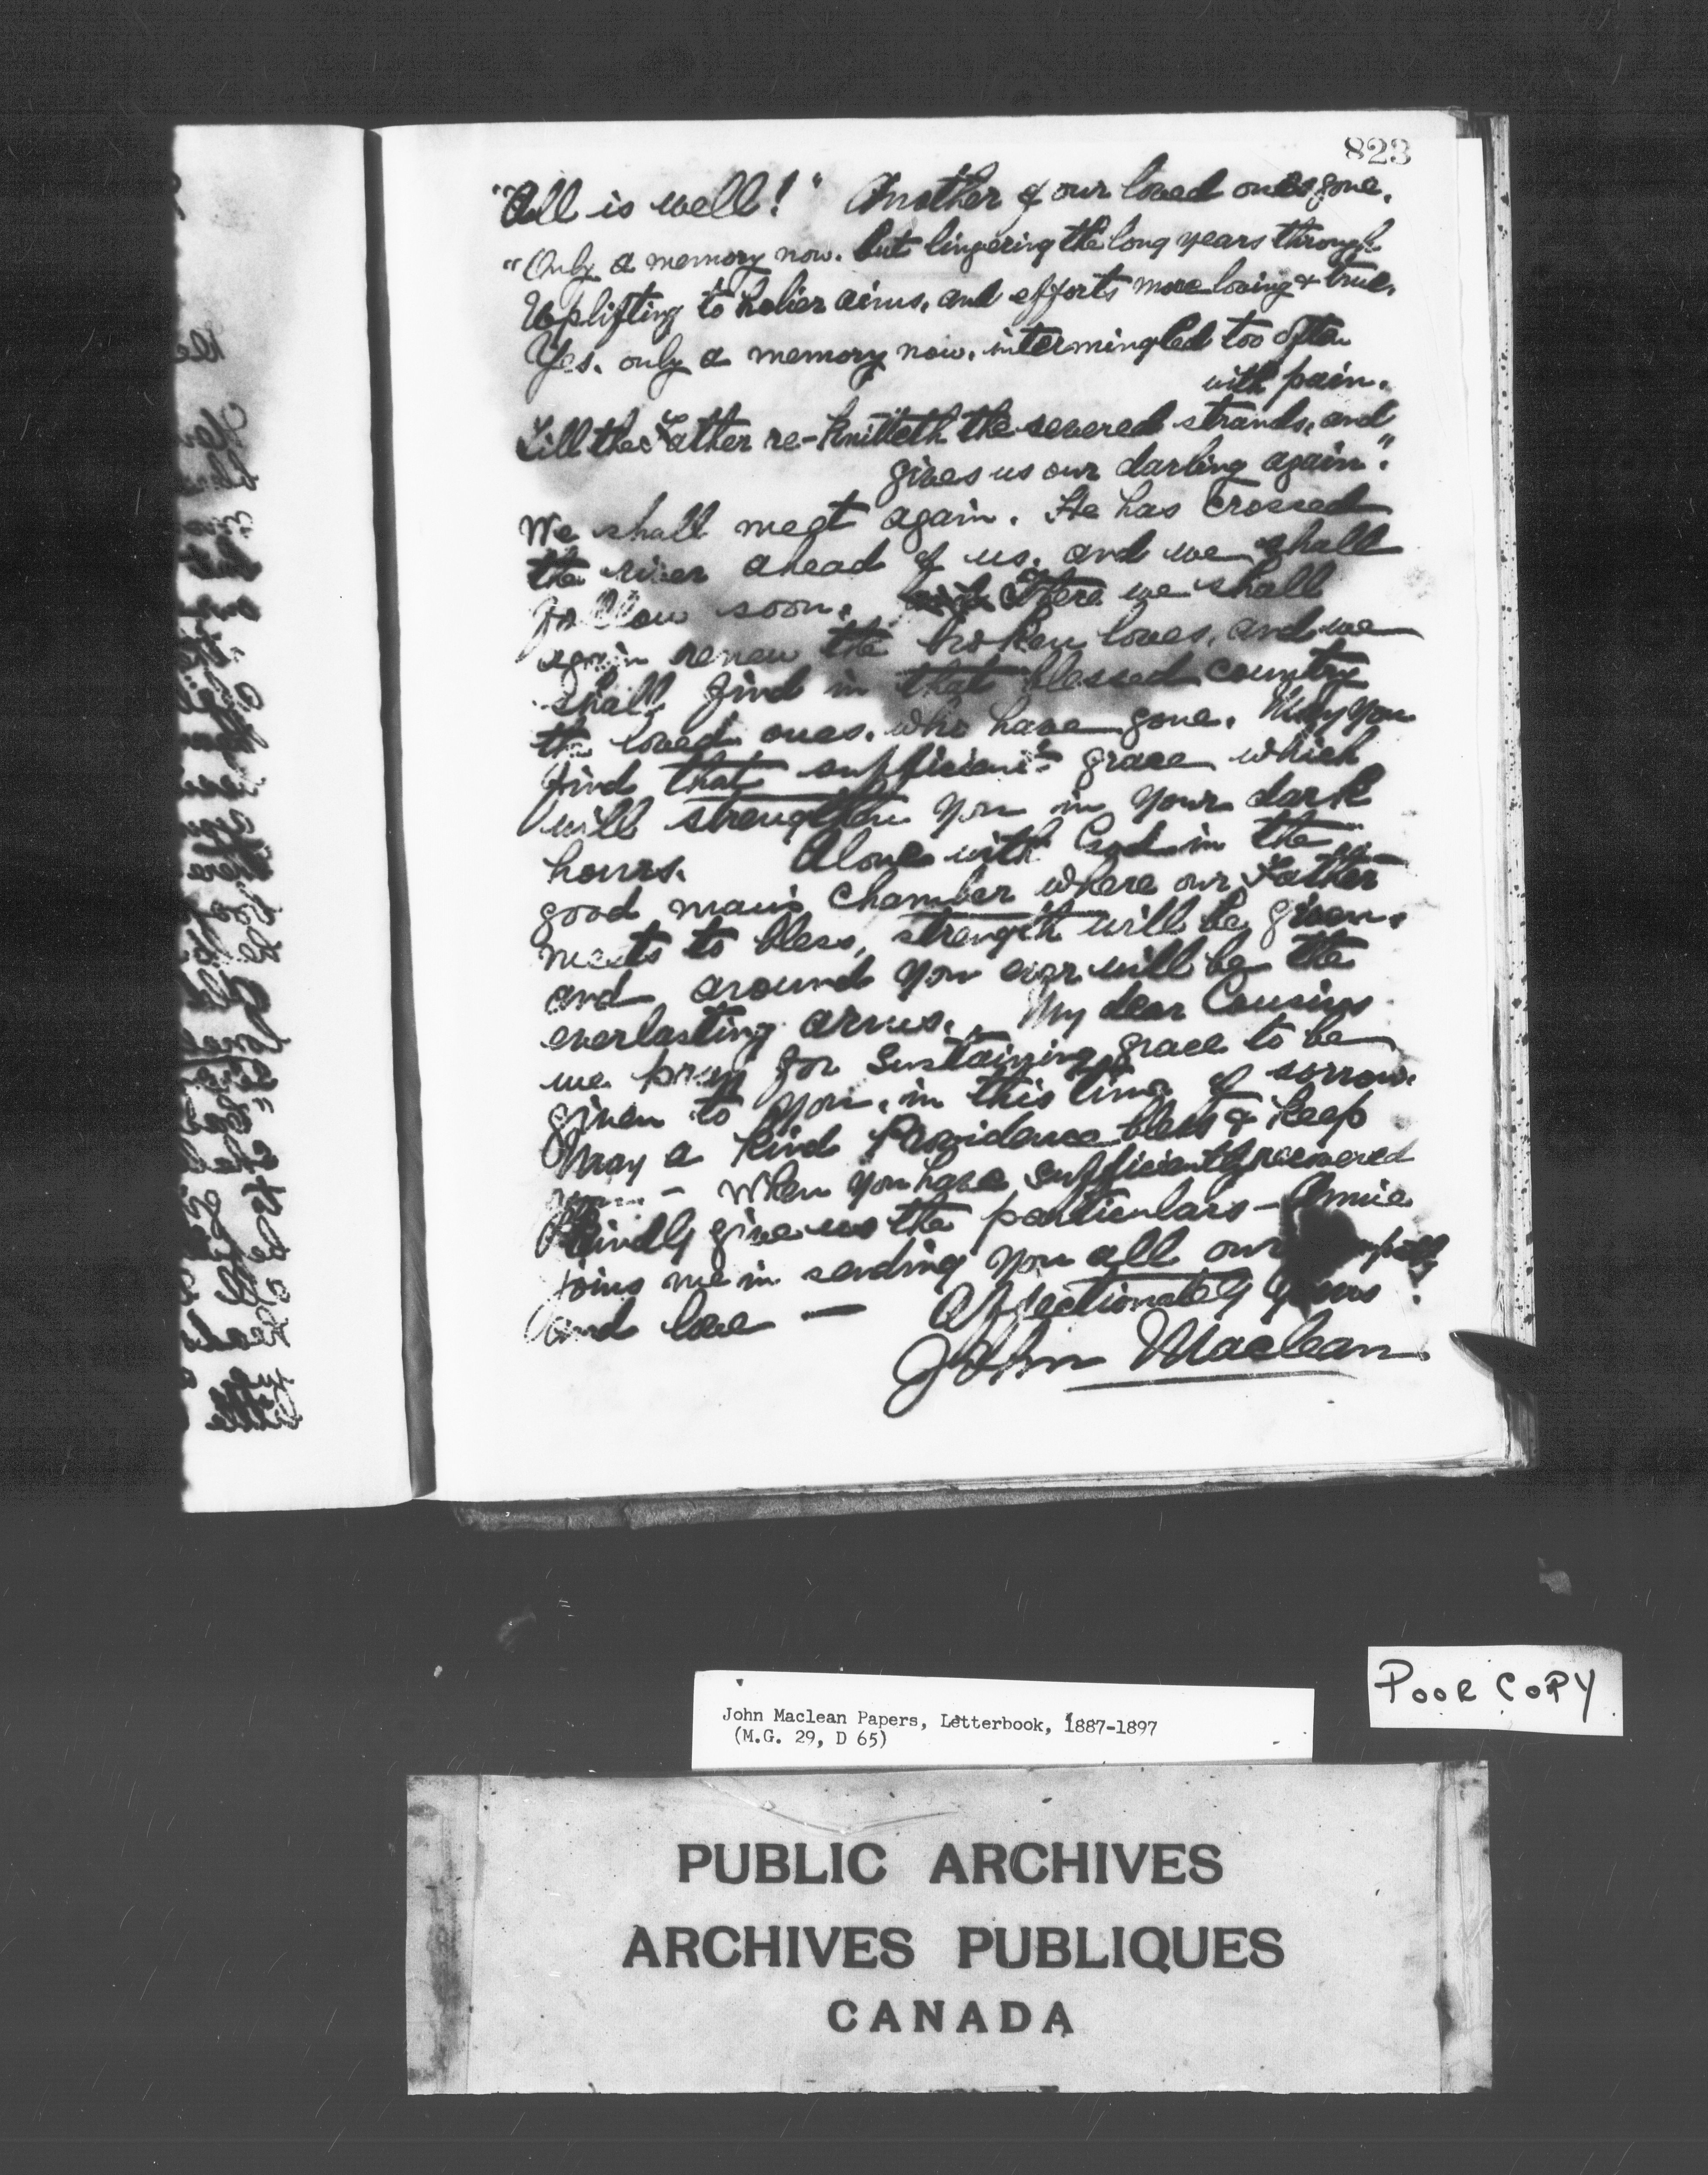 823
"All is well!" Another of our loved ones gone.
"Only a memory now. but lingering the long years through
Uplifting to holier aims, and efforts more loving & true.
Yes, only a memory now, intermingled too often
with pain.
Till the Father re-knitteth the severed strands, and
gives us our darling again".
We shall meet again. He has crossed
the river ahead of us, and we shall
follow soon. There we shall
again renew the broken loves, and we
shall find in that blessed country
the loved ones, who have gone. May you
find that sufficient grace which
will strengthen you in your dark
hours. Alone with God in the
good man's chamber where our Father
meets to bless, strength will be given,
and around you ever will be the
everlasting arms. My dear Cousins
we pray for sustaining grace to be
given to you, in this time of sorrow.
May a kind Providence bless & keep
you - When you have sufficiently recovered
Kindly give us the particulars - Annie
joins me in sending you all our
and love — Affectionately yours
John Maclean
John Maclean Papers, Letterbook, 1887-1897
(M.G. 29, D 65)
POOR COPY
PUBLIC ARCHIVES
ARCHIVES PUBLIQUES
CANADA